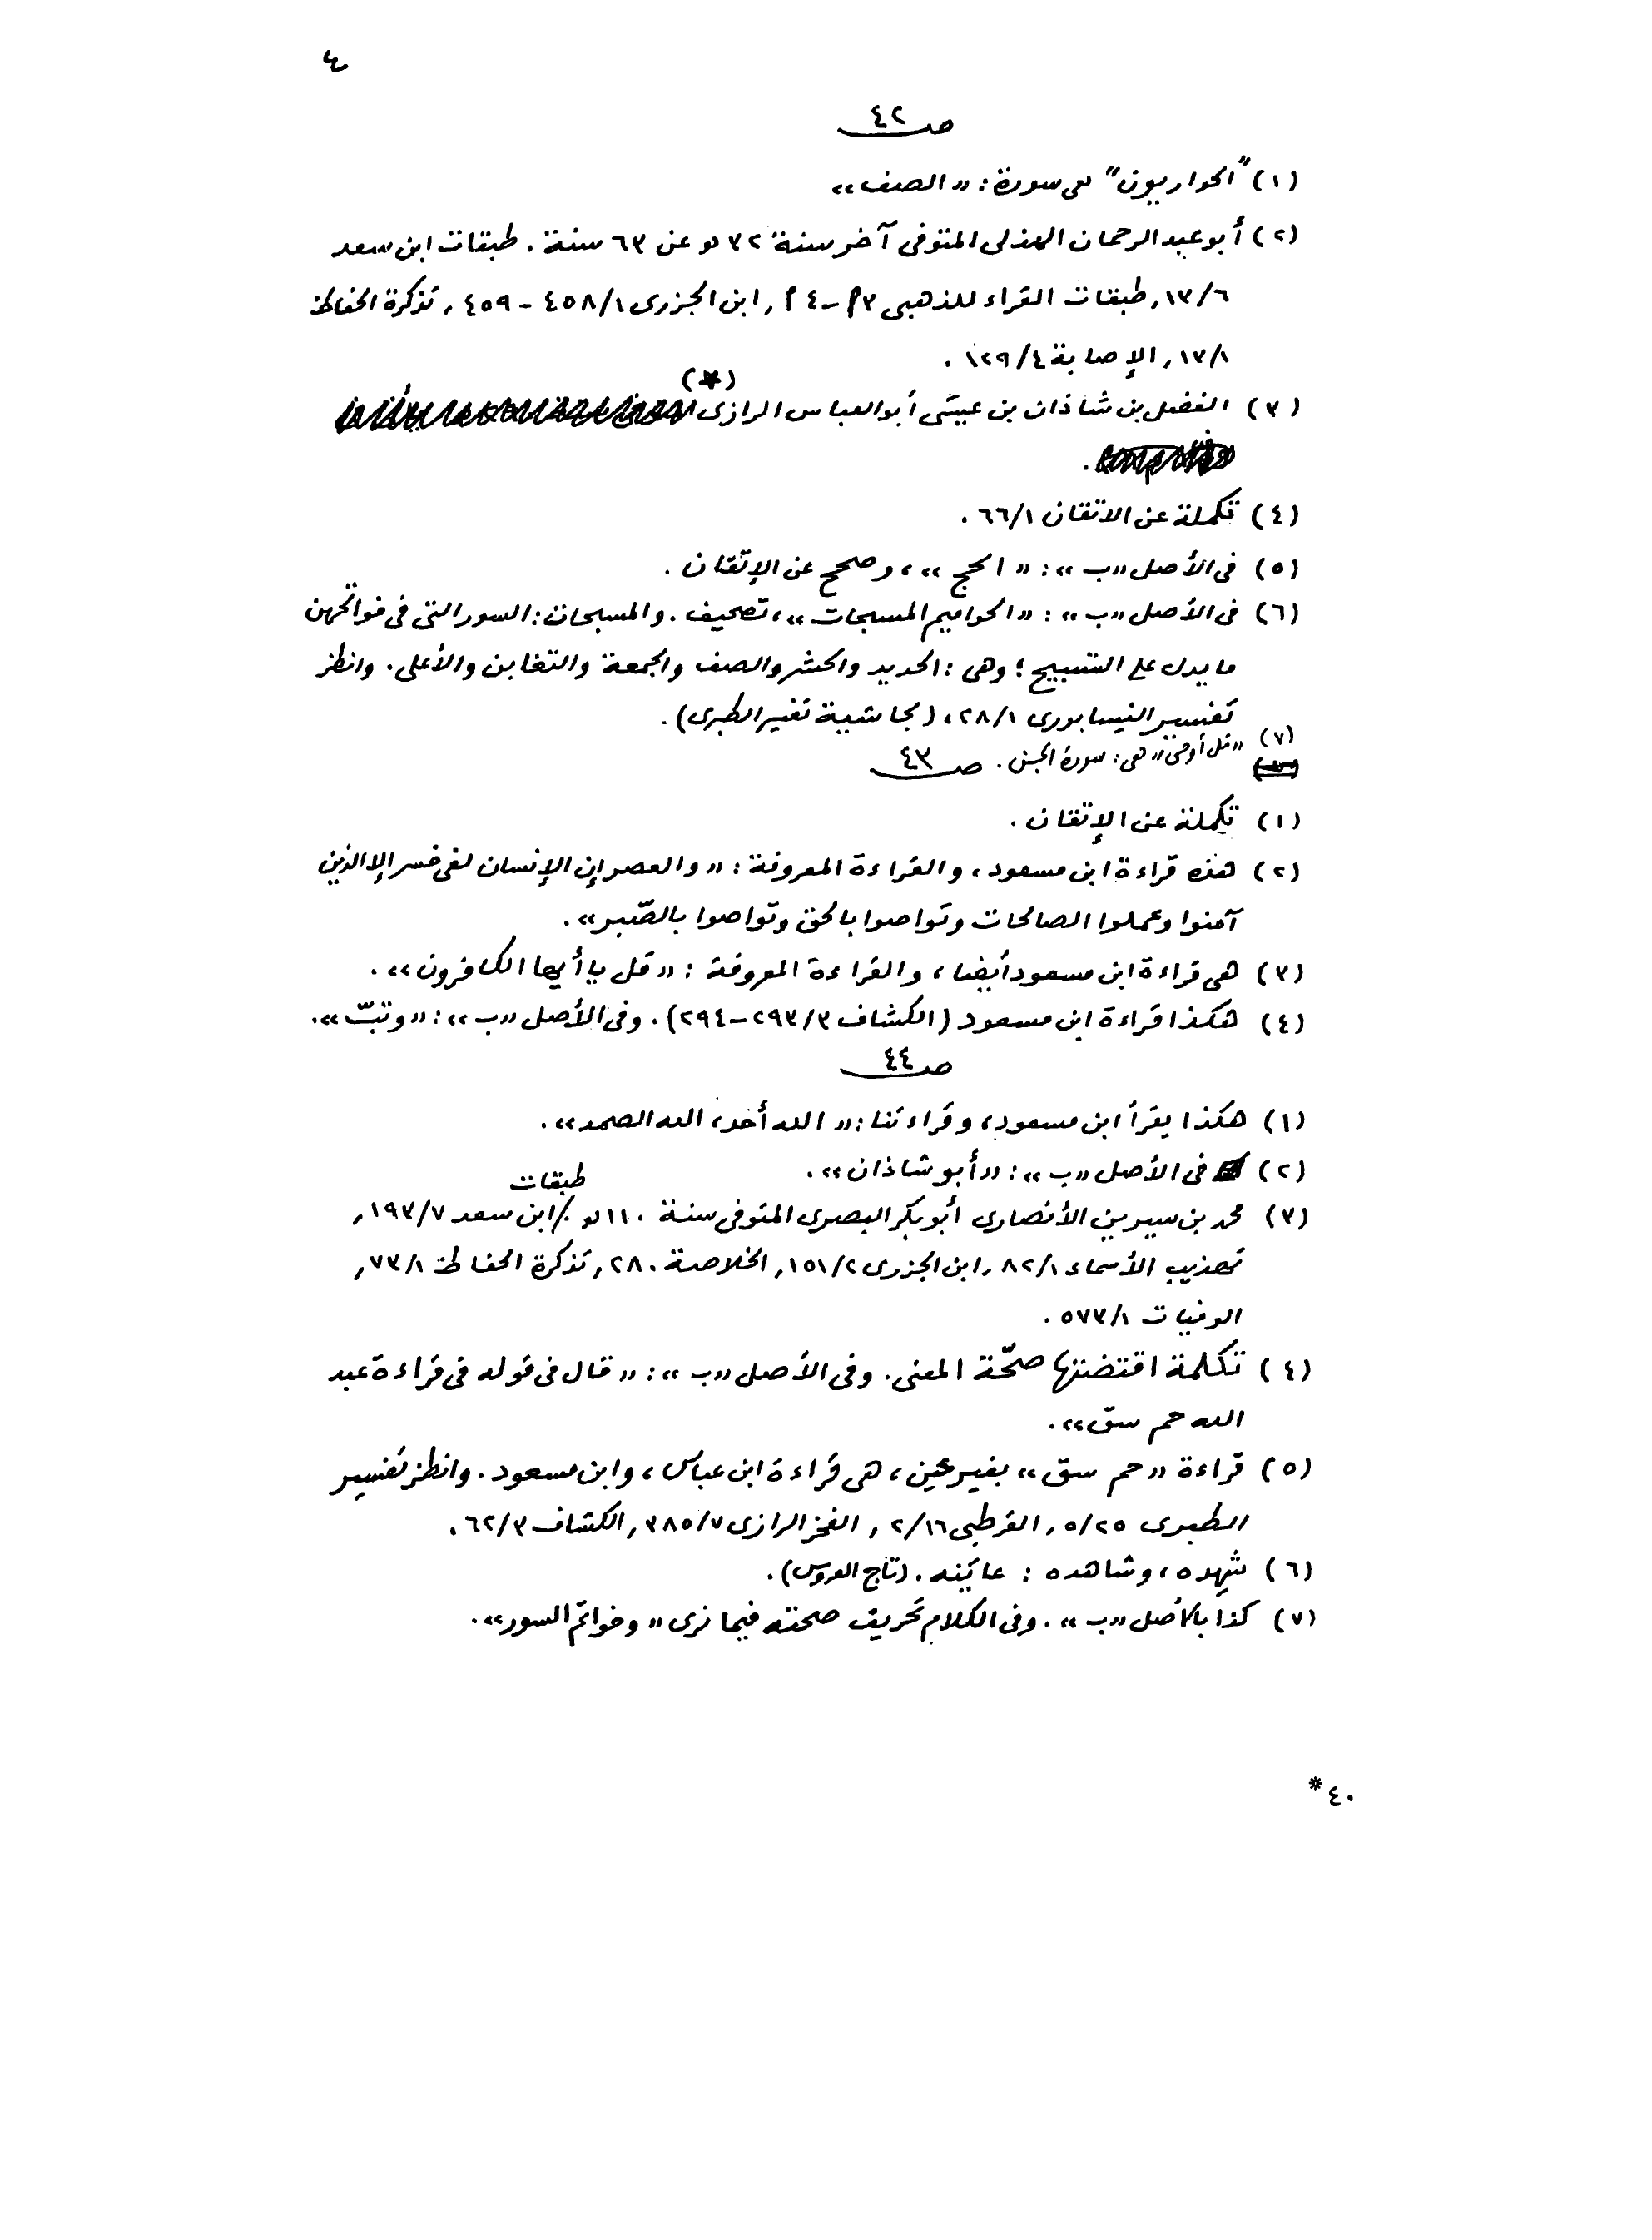 ٤
صـ ٤٢
(١) "الحواريون" هى سورة: «الصف»
(٢) أبو عبد الرحمان الهذلى المتوفى آخر سنة ٣٢ هـ عن ٦٣ سنة. طبقات ابن سعد
١٣/٦, طبقات القراء للذهبى ٣م-٤م, ابن الجزرى ٤٥٨/١ - ٤٥٩, تذكرة الحفاظ
١٣/١, الإصابة ١٢٩/٤.
(*)
(٣) الفضل بن شاذان بن عيسى أبو العباس الرازى
.
(٤) تكملة عن الاتقان ٦٦/١.
(٥) فى الأصل «ب»: «الحج»، وصحح عن الإتقان.
(٦) فى الأصل «ب»: «الحواميم المسبجات»، تصحيف. والمسبحات: السور التى فى فواتحهن
ما يدل على التسبيح؛ وهى: الحديد والحشر والصف والجمعة والتغابن والأعلى. وانظر
تفسير النيسابورى ٢٨/١، (بحاشية تفسير الطبرى).
(٧) «قل أوحى» هى: سورة الجن.
صـ ٤٣
(١) تكملة عن الإتقان.
(٢) هذه قراءة ابن مسعود، والقراءة المعروفة: «والعصر إن الإنسان لفى خسر إلا الذين
آمنوا وعملوا الصالحات وتواصوا بالحق وتواصوا بالصّبر».
(٣) هى قراءة ابن مسعود أيضا، والقراءة المعروفة: «قل يا أيها الكافرون».
(٤) هكذا قراءة ابن مسعود (الكشاف ٢٩٣/٣-٢٩٤). وفى الأصل «ب»: «وتبّ».
صـ ٤٤
(١) هكذا يقرأ ابن مسعود، وقراءتنا: «الله أحد، الله الصمد».
(٢) فى الأصل «ب»: «أبو شاذان».
(٣) محمد بن سيرين الأنصارى أبو بكر البصرى المتوفى سنة ١١٠ هـ. / طبقات ابن سعد ١٩٣/٧,
تهذيب الأسماء ٨٢/١, ابن الجزرى ١٥١/٢, الخلاصة ٢٨٠, تذكرة الحفاظ ٧٣/١,
الوفيات ٥٧٣/١.
(٤) تكلمة اقتضتها صحّة المعنى. وفى الأصل «ب»: «قال فى قوله فى قراءة عبد
الله حم سق».
(٥) قراءة «حم سق» بغير عين، هى قراءة ابن عباس، وابن مسعود. وانظر تفسير
الطبرى ٥/٢٥, القرطبى ٢/١٦, الفخر الرازى ٣٨٥/٧, الكشاف ٦٢/٣.
(٦) شهِده، وشاهده: عايَنه. (تاج العروس).
(٧) كذا بالأصل «ب». وفى الكلام تحريف صحته فيما نرى «وخواتم السور».
٤٠*